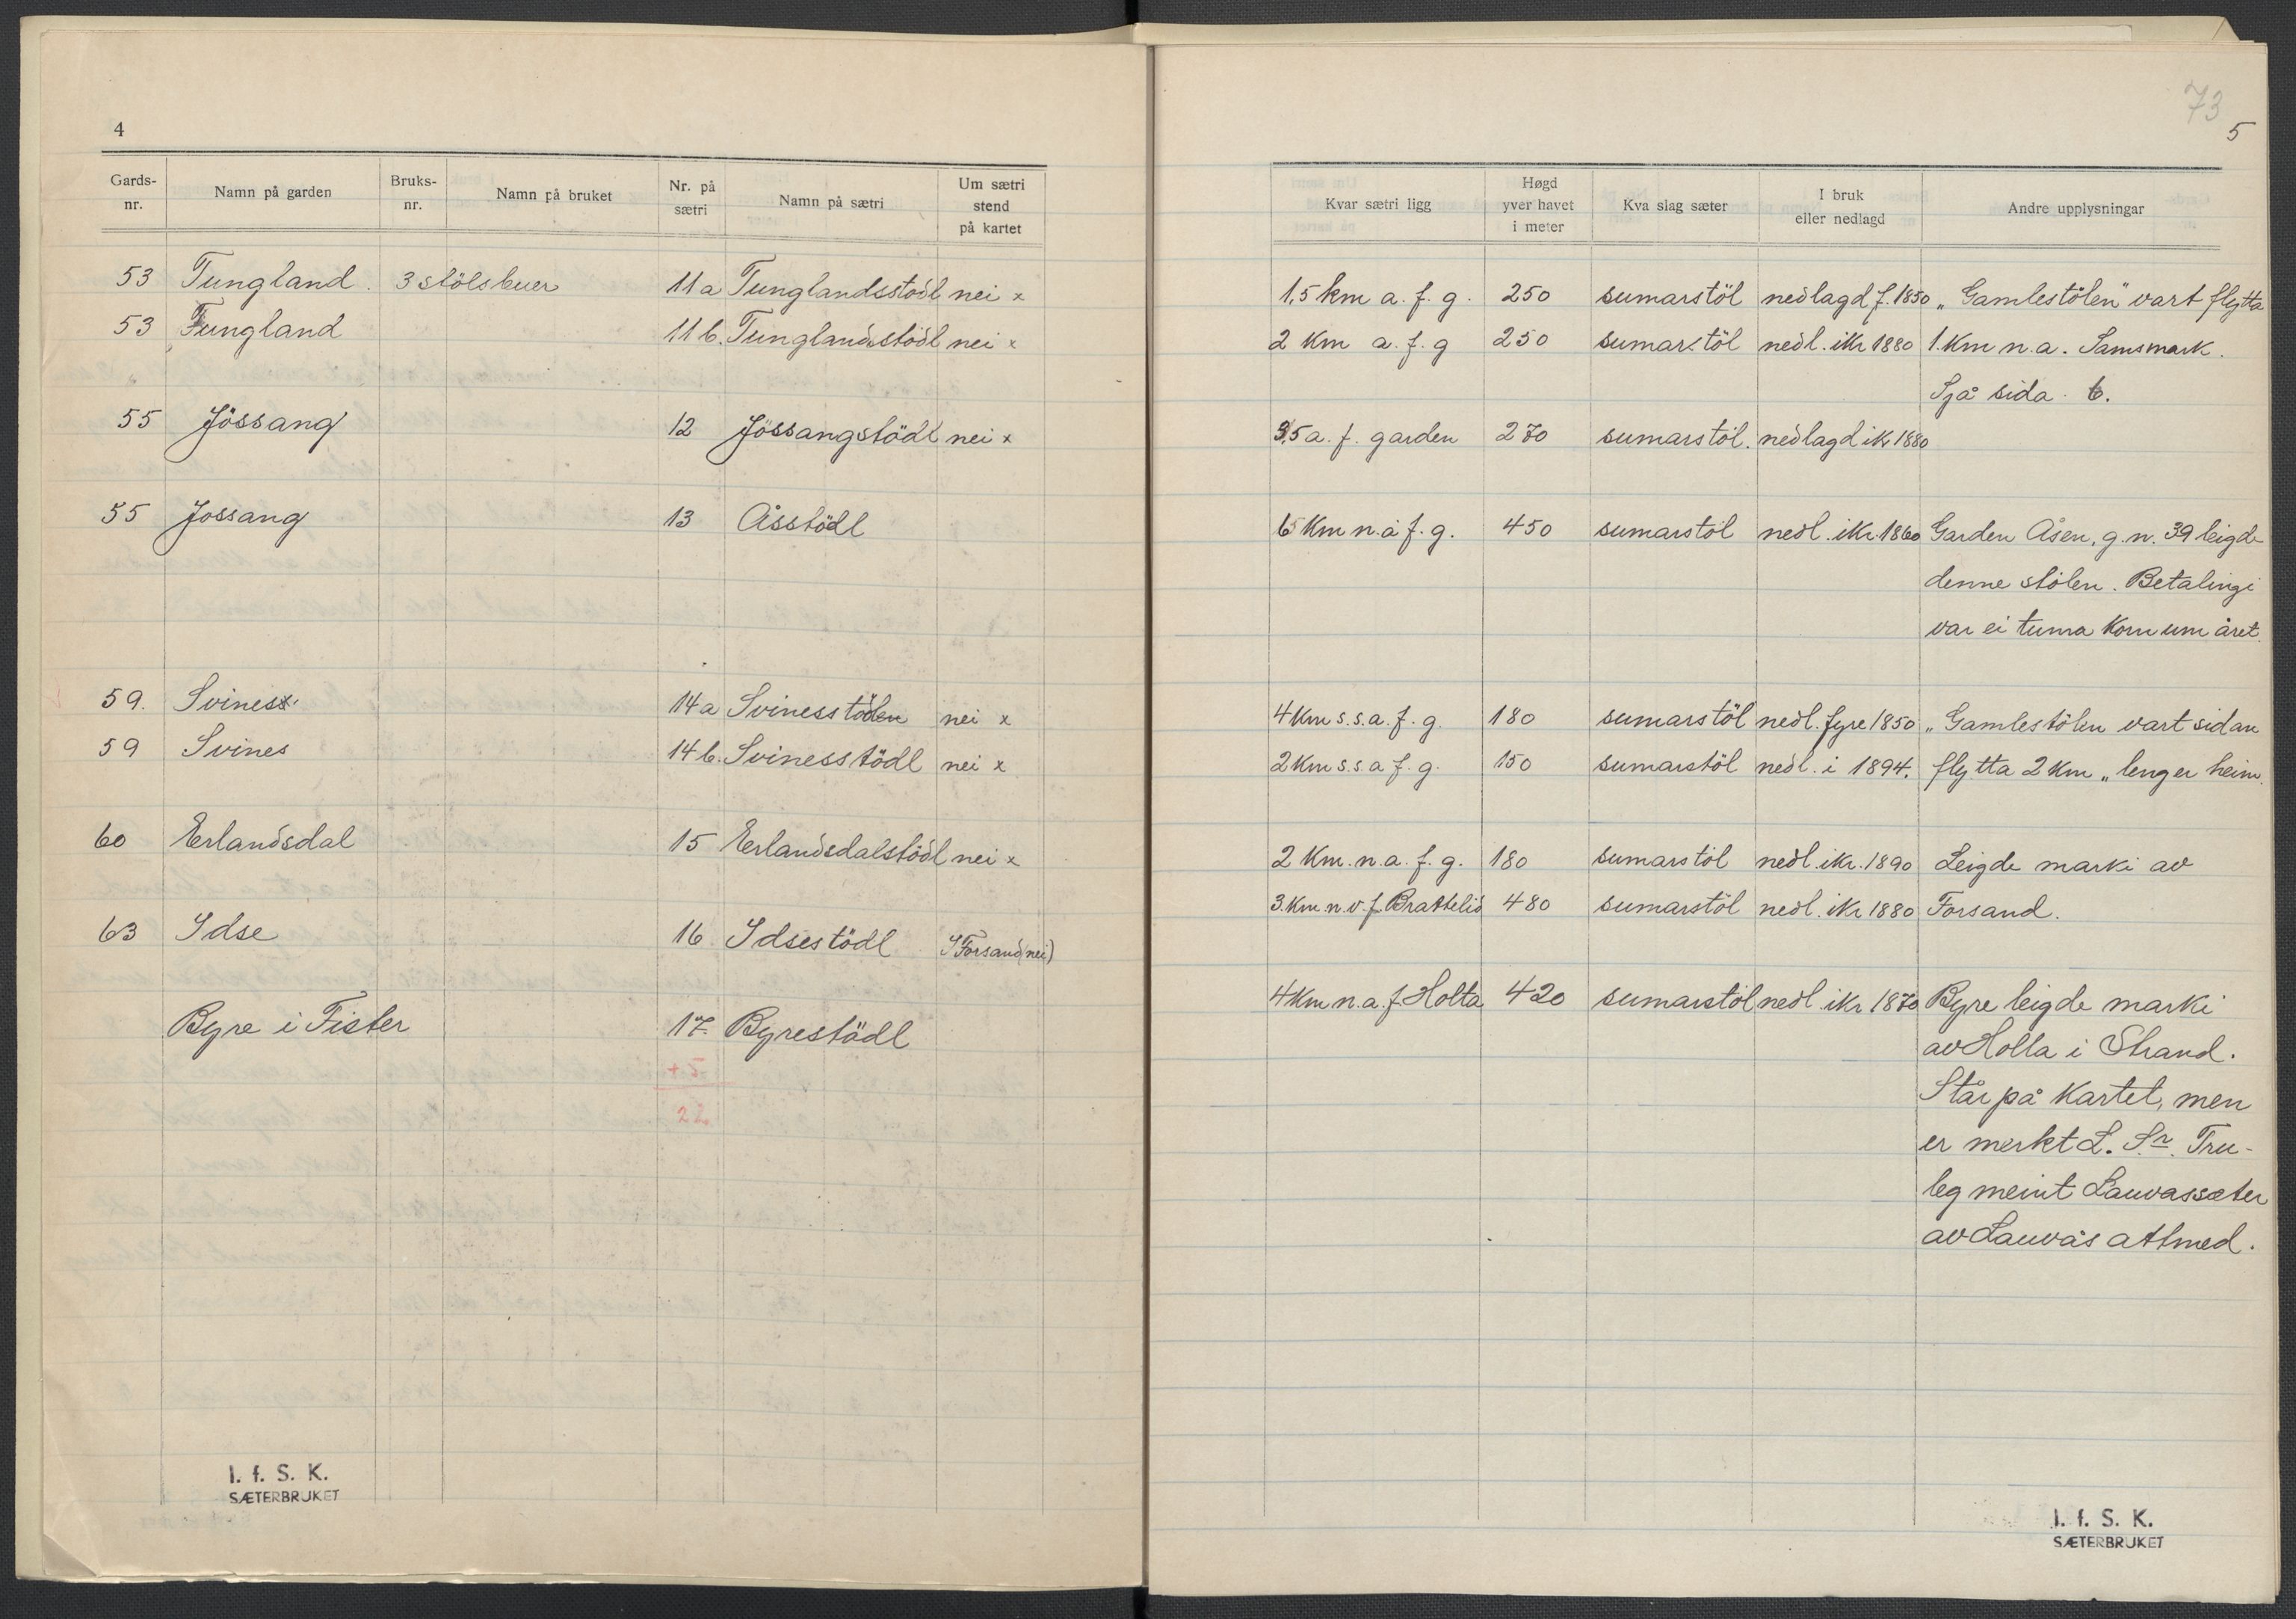 4
Gards-nr. Namn på garden Bruks-nr. Namn på bruket Nr. på sætri Namn på sætri Um sætri stend på kartet
53 Tungland. 3 stölsbuer 11a Tunglandsstödl nei x
53 Tungland 11b. Tunglandsstödl nei x
"
55 Jössang 12 Jössangstödl nei x
55 Jossang 13 Åsstödl
59. Svines 14a Svinesstölen nei x
59 Svines 14b. Svinesstödl nei x
60 Erlandsdal 15 Erlandsdalstödl nei x
63 Idse 16 Idsestödl I Forsand (nei)
Byre i Fister 17. Byrestödl
+5
22
I. f. S. K.
SÆTERBRUKET
73
5
Kvar sætri ligg Høgd yver havet i meter Kva slag sæter I bruk eller nedlagd Andre upplysningar
1,5 km a. f. g. 250 sumarstöl nedlagd f. 1850 „Gamlestölen" vart flytta
2 Km a. f. g 250 sumarstöl nedl. ikr 1880 1. Km n.a. Samsmark.
Sjå sida 6.
3,5 a. f. garden 270 sumarstöl. nedlagd ikr 1880
6,5 Km n.a f. g. 450 sumarstöl nedl. ikr. 1860 Garden Åsen, g.n. 39 leigde
denne stölen. Betalingi
var ei tunna Korn um året.
4 Km s.s.a. f. g. 180 sumarstöl nedl. fyre 1850 „Gamlestölen vart sidan
2 Km s.s.a f. g. 150 sumarstöl nedl. i 1894. flytta 2 Km „lenger heim.
2 Km. n.a. f. g. 180 sumarstöl nedl. ikr. 1890 Leigde marki av
3. Km. n.v. f. Brattelid 480 sumarstöl nedl. ikr 1880 Forsand.
4 Km n.a. f Holta 420 sumarstöl nedl. ikr 1870 Byre leigde marki
av Holta i Strand.
Står på Kartet, men
er merkt L. Sr. Tru-
leg meint Lauvassæter
av Lauvås attmed.
I. f. S. K.
SÆTERBRUKET